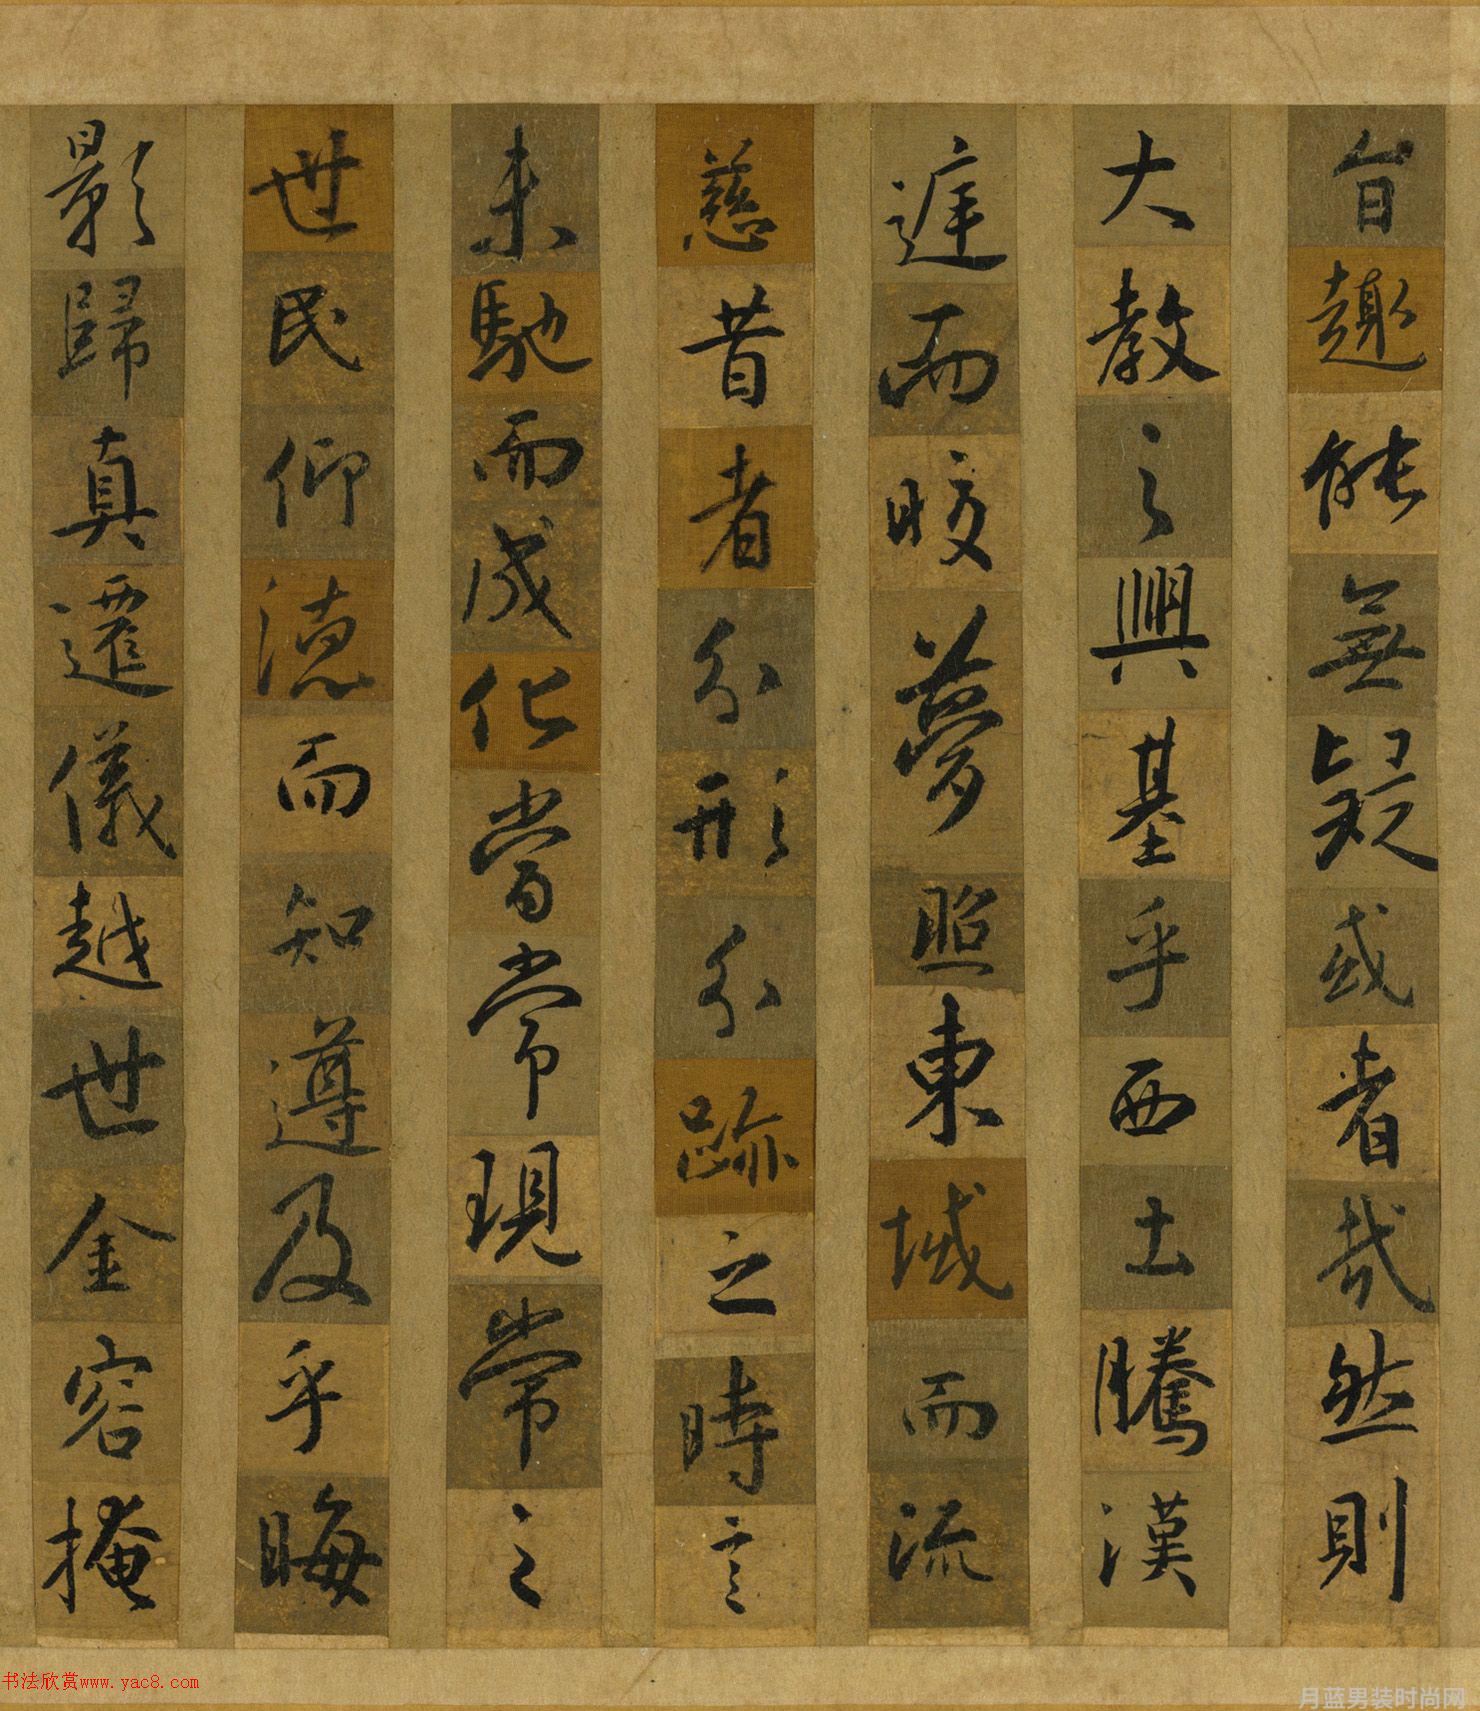 旨趣能無疑或者哉然則
大教之興基乎西土騰漢
庭而皎夢照東域而流
慈昔者分形分跡之時言
未馳而成化當常現常之
世民仰德而知遵及乎晦
影歸真遷儀越世金容掩
书法欣赏www.yac8.com
月蓝男装时尚网